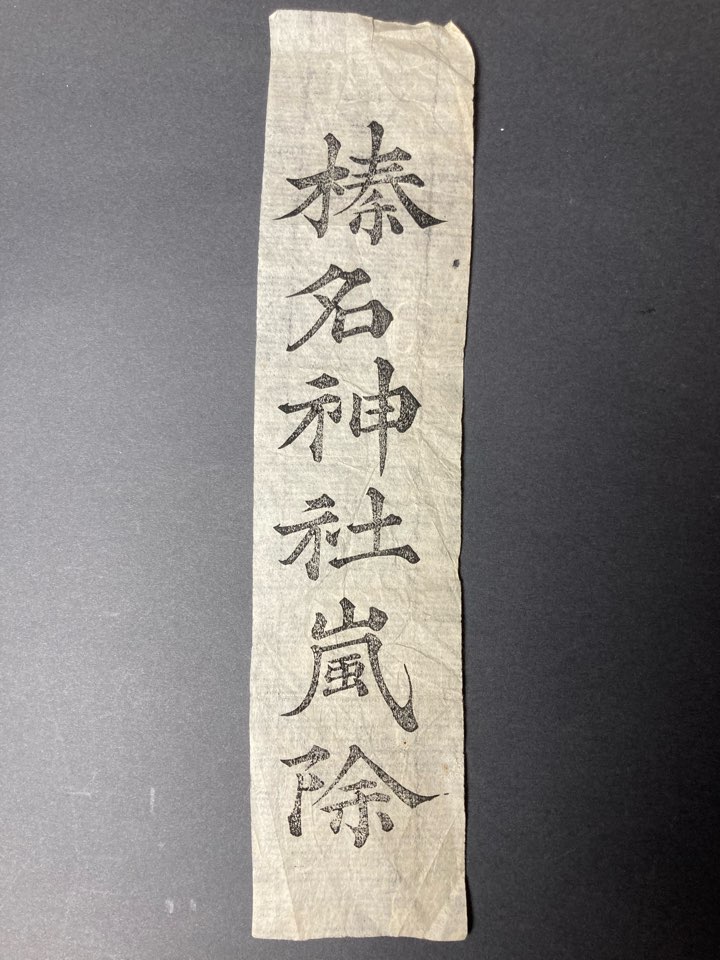 榛名神社嵐除